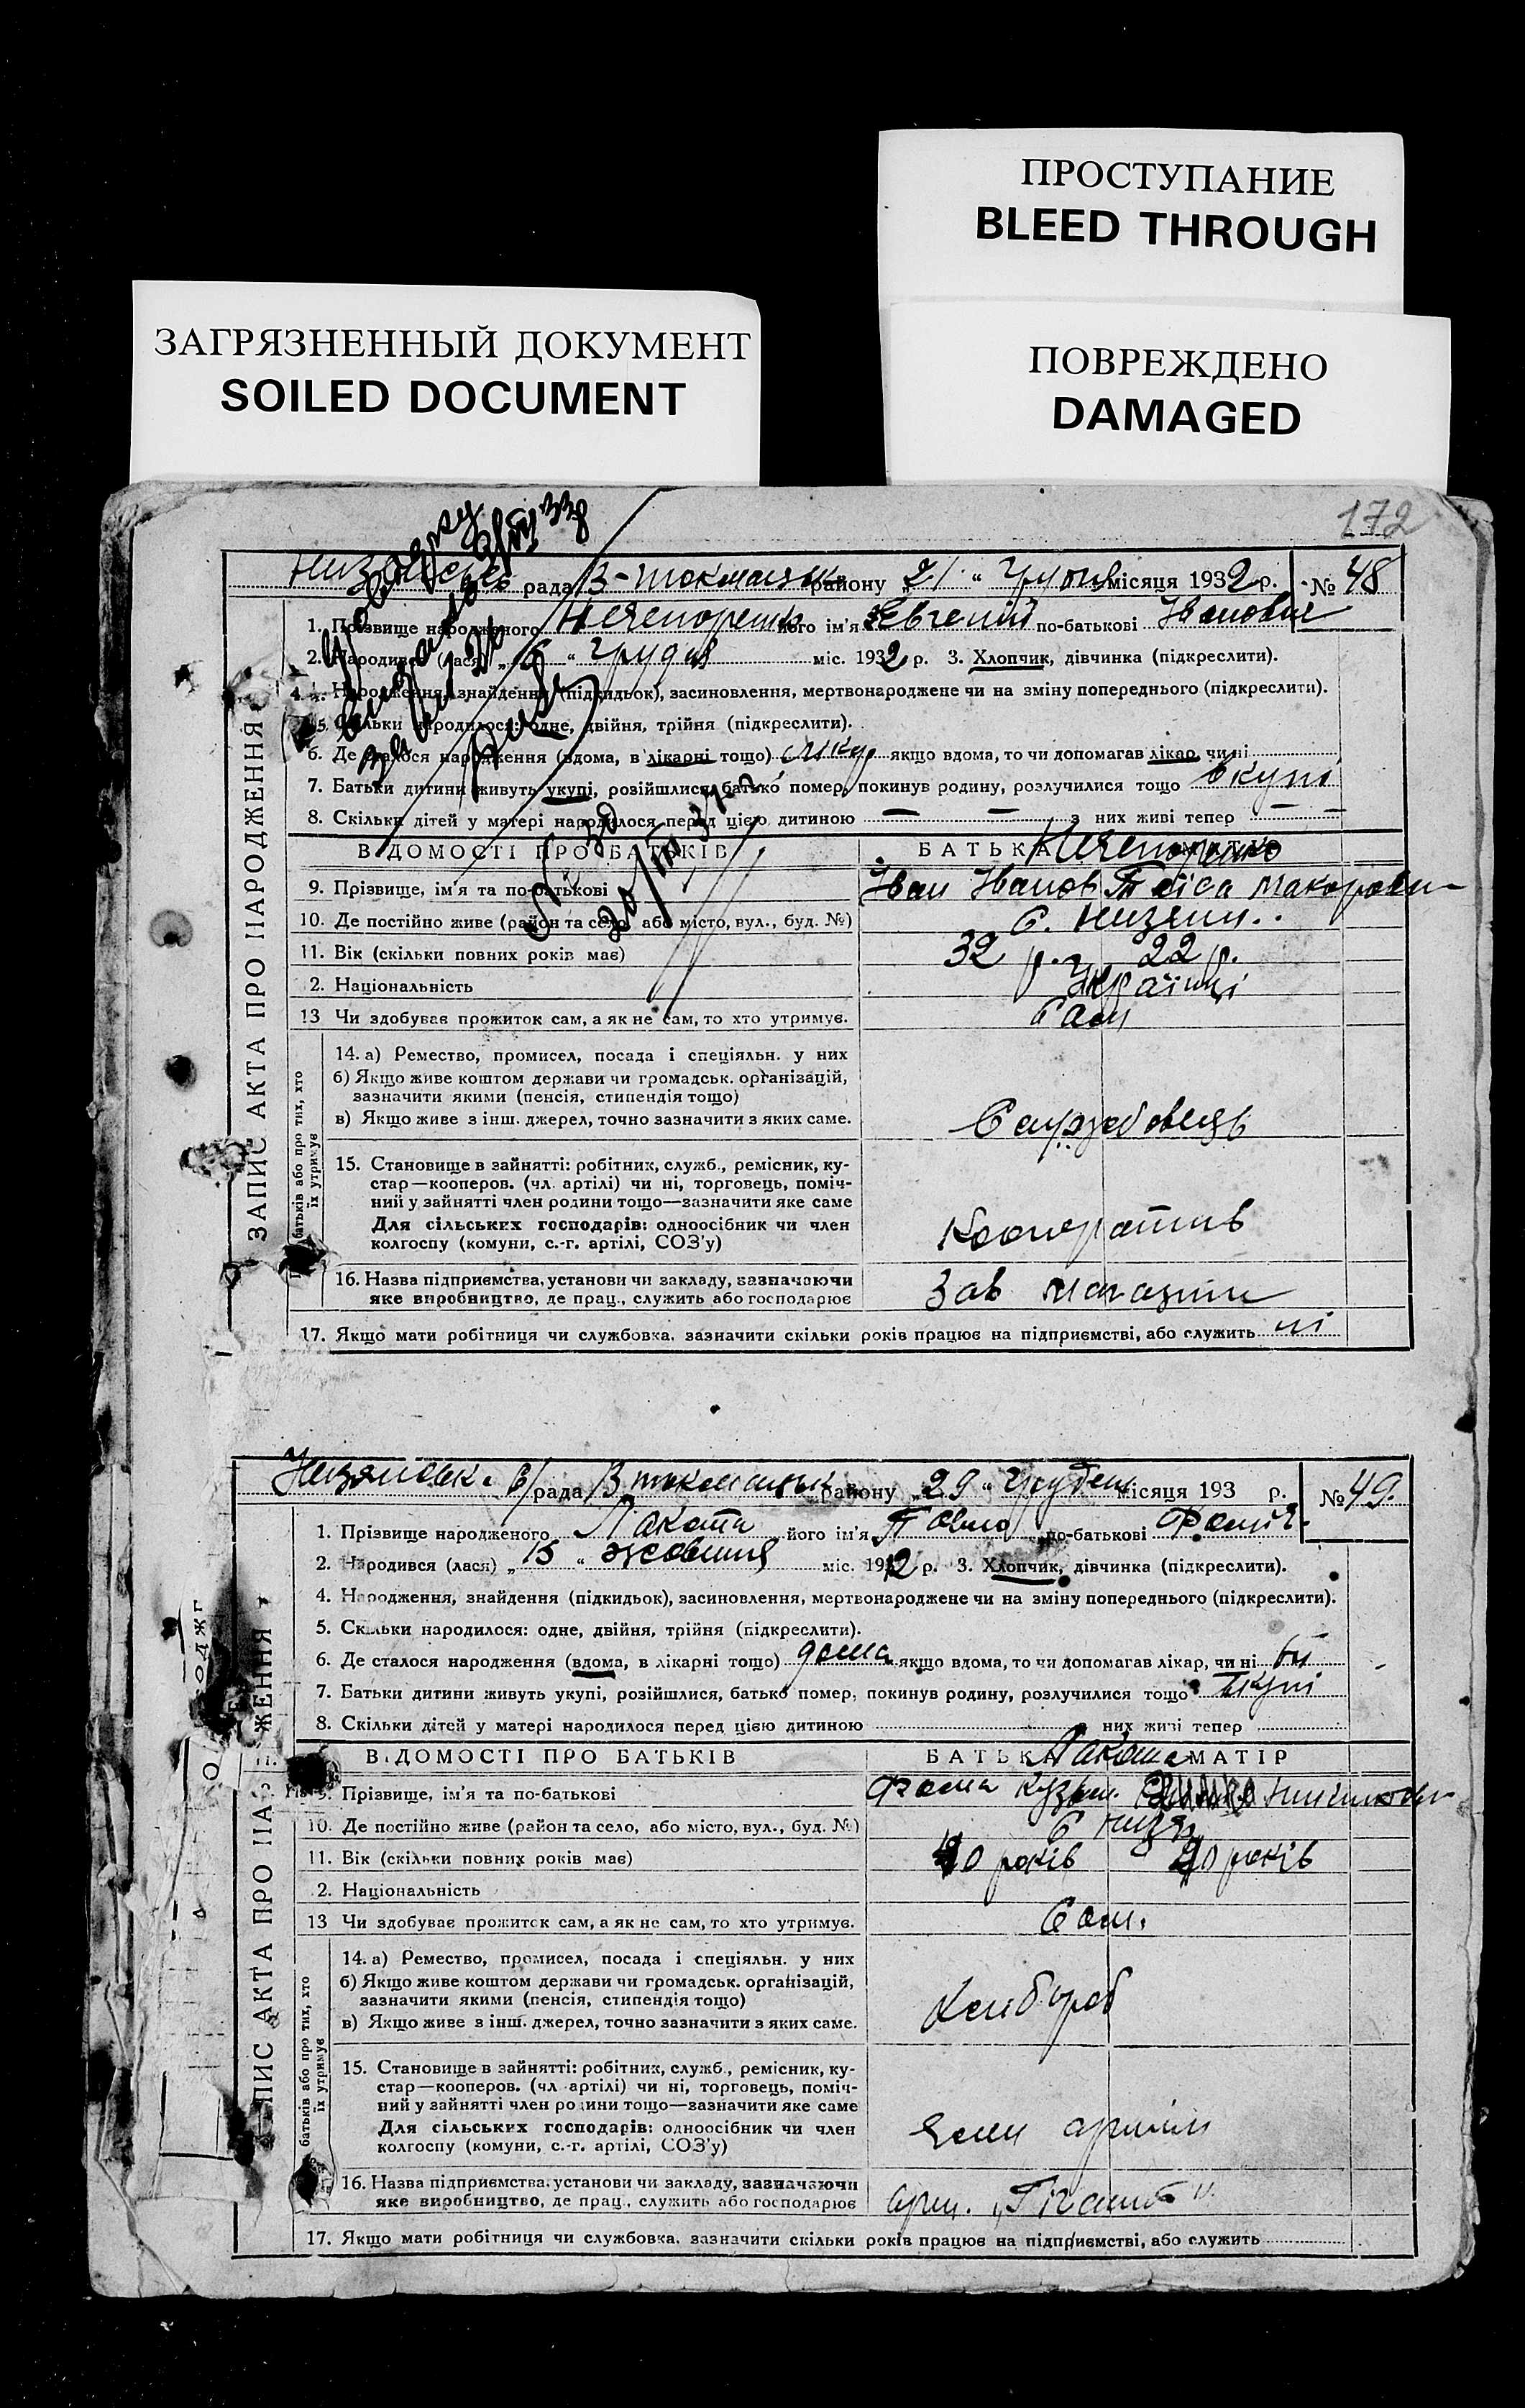 ПРОСТУПАНИЕ
BLEED THROUGH
ЗАГРЯЗНЕННЫЙ ДОКУМЕНТ
SOILED DOCUMENT
ПОВРЕЖДЕНО
DAMAGED
172
рада В-токмацьк району „21“ місяця 1932 р. № 48
1. Прізвище народженого його ім'я Євгеній по-батькові Іванович
2. Народився (лася) „6“ Грудня міс. 1932 р. 3. Хлопчик, дівчинка (підкреслити).
4. Народження, знайдення (підкидьок), засиновлення, мертвонароджене чи на зміну попереднього (підкреслити).
5. Скільки народилося: одне, двійня, трійня (підкреслити).
6. Де сталося народження (вдома, в лікарні тощо) якщо вдома, то чи допомагав лікар, чи ні
7. Батьки дитини живуть укупі, розійшлися, батько помер, покинув родину, розлучилися тощо вкупі
8. Скільки дітей у матері народилося перед цією дитиною — — з них живі тепер — —
ЗАПИС АКТА ПРО НАРОДЖЕННЯ
ВІДОМОСТІ ПРО БАТЬКІВ БАТЬКА
9. Прізвище, ім'я та по-батькові Іван Іванов
10. Де постійно живе (район та село, або місто, вул., буд. №)
11. Вік (скільки повних років має) 32 р. 22 р.
2. Національність Українці
13 Чи здобуває прожиток сам, а як не сам, то хто утримує. Сам
батьків або про тих, хто їх утримує
14. а) Ремество, промисел, посада і спеціяльн. у них
б) Якщо живе коштом держави чи громадськ. організацій,
зазначити якими (пенсія, стипендія тощо)
в) Якщо живе з інш. джерел, точно зазначити з яких саме.
15. Становище в зайнятті: робітник, служб., ремісник, ку-
стар—кооперов. (чл. артілі) чи ні, торговець, поміч-
ний у зайнятті член родини тощо—зазначити яке саме
Для сільських господарів: одноосібник чи член
колгоспу (комуни, с.-г. артілі, СОЗ'у)
Кооператив
16. Назва підприємства, установи чи закладу, зазначаючи
яке виробництво, де прац., служить або господарює
Зав магазину
17. Якщо мати робітниця чи службовка, зазначити скільки років працює на підприємстві, або служить ні
рада району „29“ Грудень місяця 193 р. № 49.
1. Прізвище народженого Лакота його ім'я Павло по-батькові
2. Народився (лася) „15“ жовтня міс. 1932 р. 3. Хлопчик, дівчинка (підкреслити).
4. Народження, знайдення (підкидьок), засиновлення, мертвонароджене чи на зміну попереднього (підкреслити).
5. Скільки народилося: одне, двійня, трійня (підкреслити).
6. Де сталося народження (вдома, в лікарні тощо) дома якщо вдома, то чи допомагав лікар, чи ні
7. Батьки дитини живуть укупі, розійшлися, батько помер, покинув родину, розлучилися тощо вкупі
8. Скільки дітей у матері народилося перед цією дитиною з них живі тепер
ПИС АКТА ПРО НА ЖЕННЯ
ВІДОМОСТІ ПРО БАТЬКІВ БАТЬКА Лакота МАТІР
9. Прізвище, ім'я та по-батькові Фома Кузьм.
10. Де постійно живе (район та село, або місто, вул., буд. №)
11. Вік (скільки повних років має) років років
2. Національність
13 Чи здобуває прожиток сам, а як не сам, то хто утримує. Сам.
батьків або про тих, хто їх утримує
14. а) Ремество, промисел, посада і спеціяльн. у них
б) Якщо живе коштом держави чи громадськ. організацій,
зазначити якими (пенсія, стипендія тощо)
в) Якщо живе з інш. джерел, точно зазначити з яких саме.
15. Становище в зайнятті: робітник, служб., ремісник, ку-
стар—кооперов. (чл артілі) чи ні, торговець, поміч-
ний у зайнятті член родини тощо—зазначити яке саме
Для сільських господарів: одноосібник чи член
колгоспу (комуни, с.-г. артілі, СОЗ'у)
Член артіли
16. Назва підприємства, установи чи закладу, зазначаючи
яке виробництво, де прац., служить або господарює
„Гігант“
17. Якщо мати робітниця чи службовка, зазначити скільки років працює на підприємстві, або служить